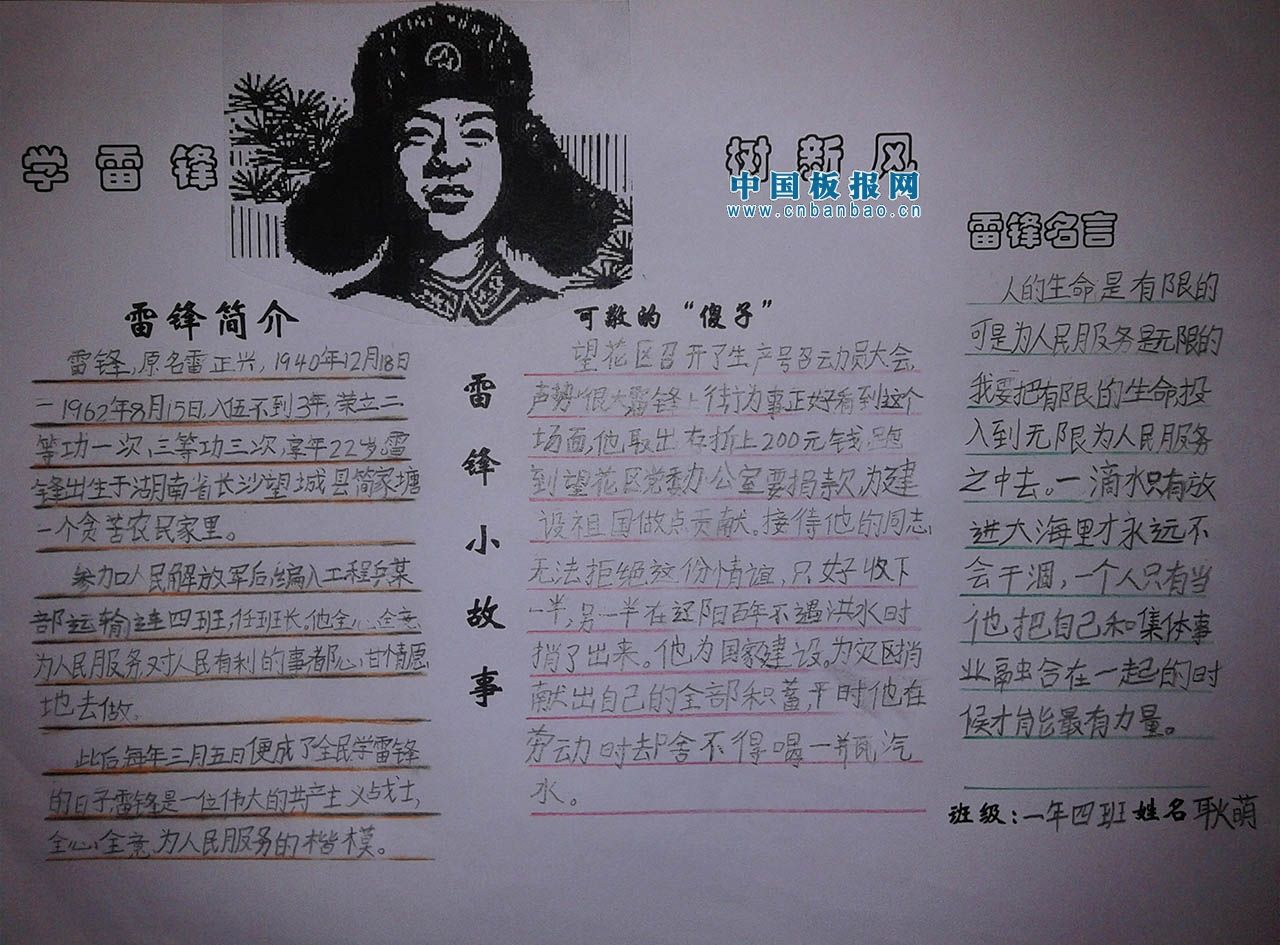 学雷锋
树新风
中国板报网
www.cnbanbao.cn
雷锋简介
雷锋,原名雷正兴,1940年12月18日
-1962年8月15日,入伍不到3年,荣立二
等功一次,三等功三次,享年22岁,雷
锋出生于湖南省长沙望城县简家塘
一个贫苦农民家里。
参加人民解放军后,编入工程兵某
部运输连四班,任班长。他全心全意
为人民服务,对人民有利的事都心甘情愿
地去做。
此后每年三月五日便成了全民学雷锋
的日子雷锋是一位伟大的共产主义战士,
全心全意为人民服务的楷模。
雷锋小故事
可敬的“傻子”
望花区召开了生产号召动员大会,
声势很大雷锋上街办事正好看到这个
场面,他取出存折上200元钱,跑
到望花区党委办公室要捐款,为建
设祖国做点贡献。接待他的同志
无法拒绝这份情谊,只好收下
一半,另一半在辽阳百年不遇洪水时
捐了出来。他为国家建设。为灾区捐
献出自己的全部积蓄,平时他在
劳动时去却舍不得喝一瓶汽
水。
雷锋名言
人的生命是有限的
可是为人民服务是无限的
我要把有限的生命投
入到无限为人民服务
之中去。一滴水只有放
进大海里才永远不
会干涸,一个人只有当
他把自己和集体事
业融合在一起的时
候才能最有力量。
班级:一年四班 姓名 耿萌